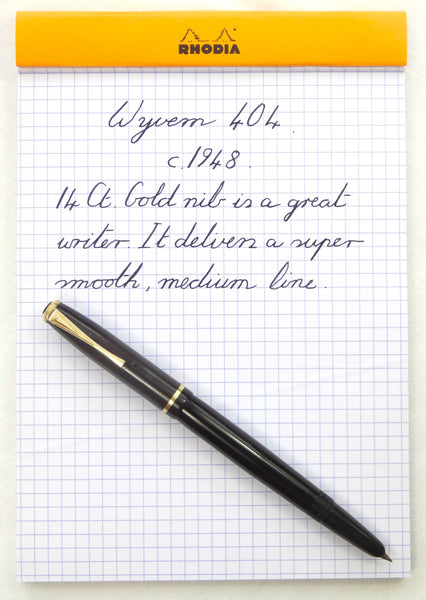 RHODIA
Wyvern 404.
c.1948.
14 Ct. Gold nib is a great
writer. It delivers a super
smooth, medium line.